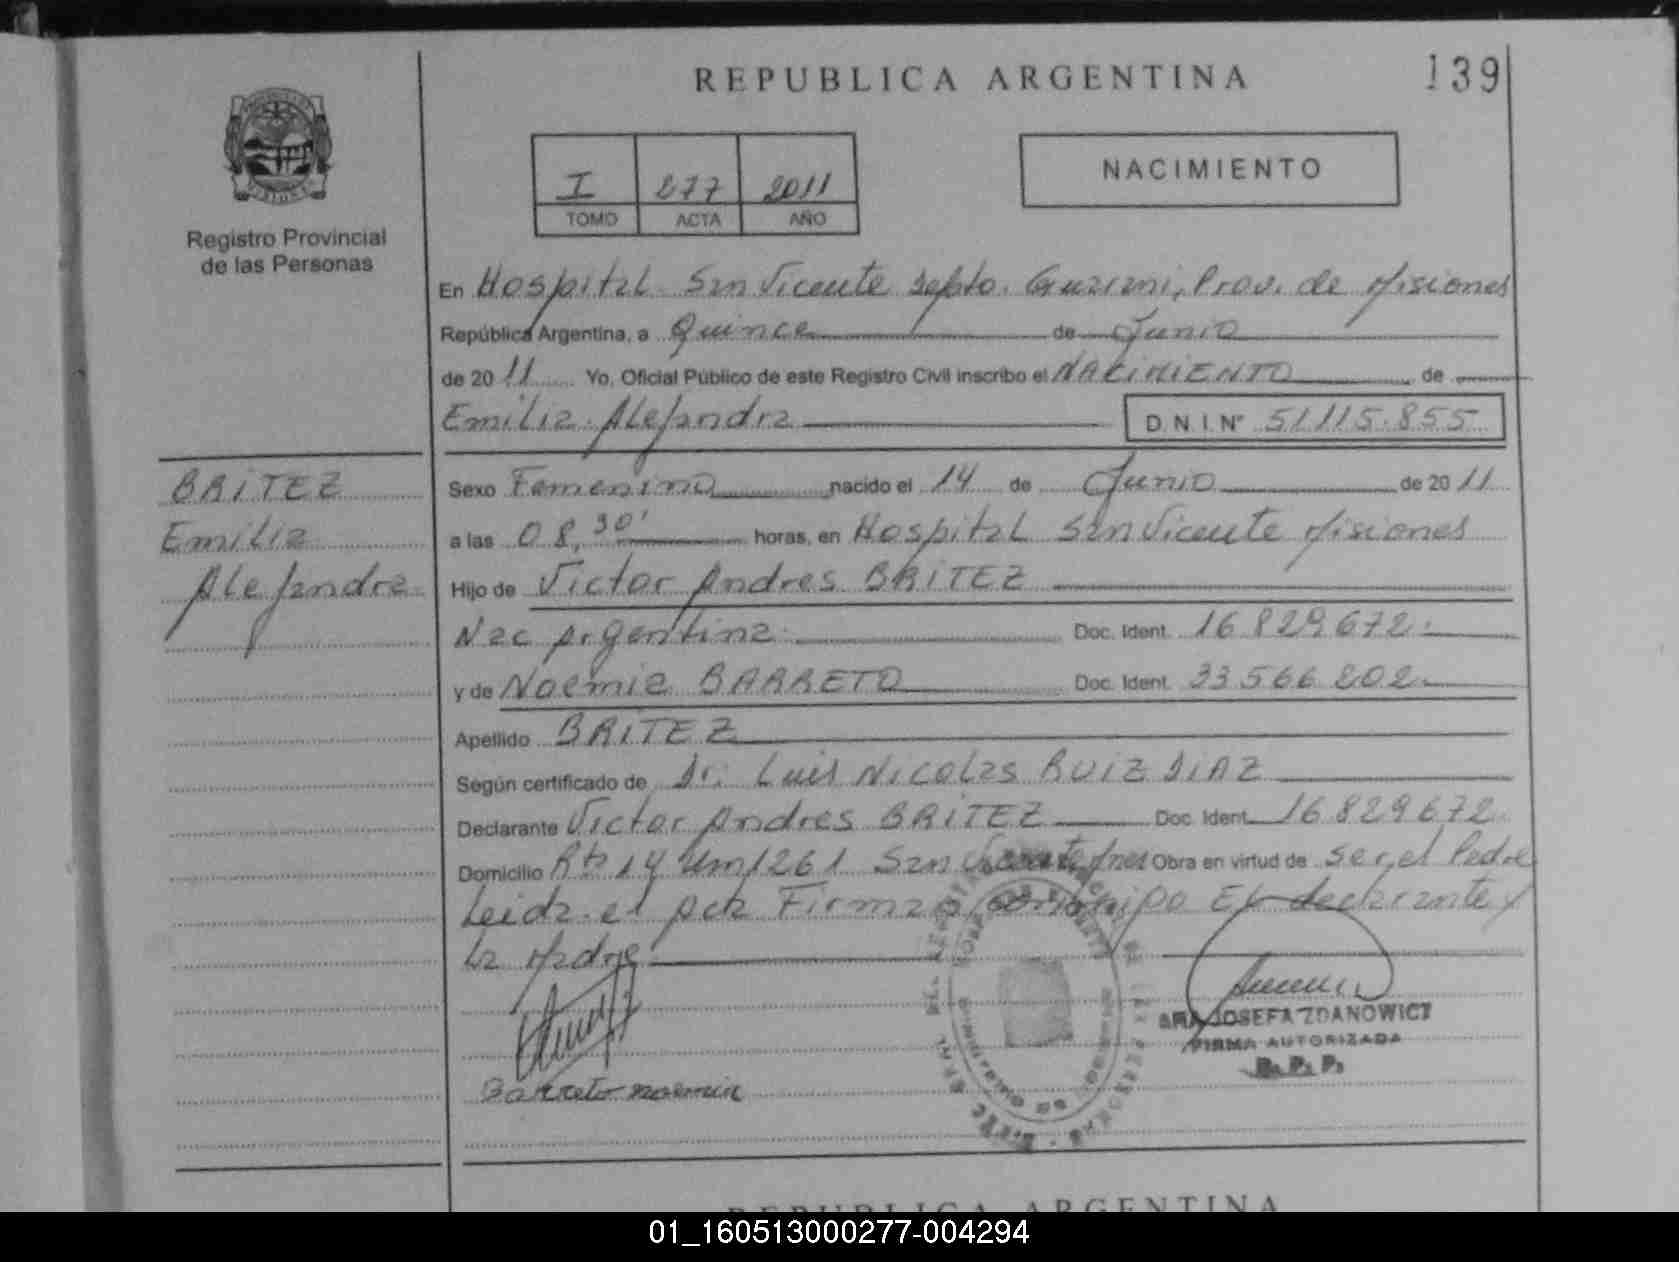 REPUBLICA ARGENTINA
139
I 277 2011
TOMO ACTA AÑO
NACIMIENTO
Registro Provincial
de las Personas
En Hospital San Vicente Depto. Guarani, Prov. de Misiones
República Argentina, a Quince de Junio
de 2011 Yo, Oficial Público de este Registro Civil inscribo el NACIMIENTO de
Emilia Alejandra D.N.I.Nº 51115.855
BRITEZ
Emilia
Alejandra
Sexo Femenino nacido el 14 de Junio de 2011
a las 08,30' horas, en Hospital San Vicente Misiones
Hijo de Victor Andres BRITEZ
Nac Argentina Doc. Ident. 16.829.672.
y de Noemia BARRETO Doc. Ident. 33.566.202.
Apellido BRITEZ
Según certificado de Dr. Luis Nicolas RUIZ DIAZ
Declarante Victor Andres BRITEZ Doc. Ident. 16829672.
Domicilio Rta 14 Km 1261 San Vicente Mnes Obra en virtud de ser el Padre
Leida el acta Firman conmigo El declarante y
La Madre
Barreto noemia
JOSEFA ZDANOWICZ
FIRMA AUTORIZADA
R. P. P.
REPUBLICA ARGENTINA
01_160513000277-004294